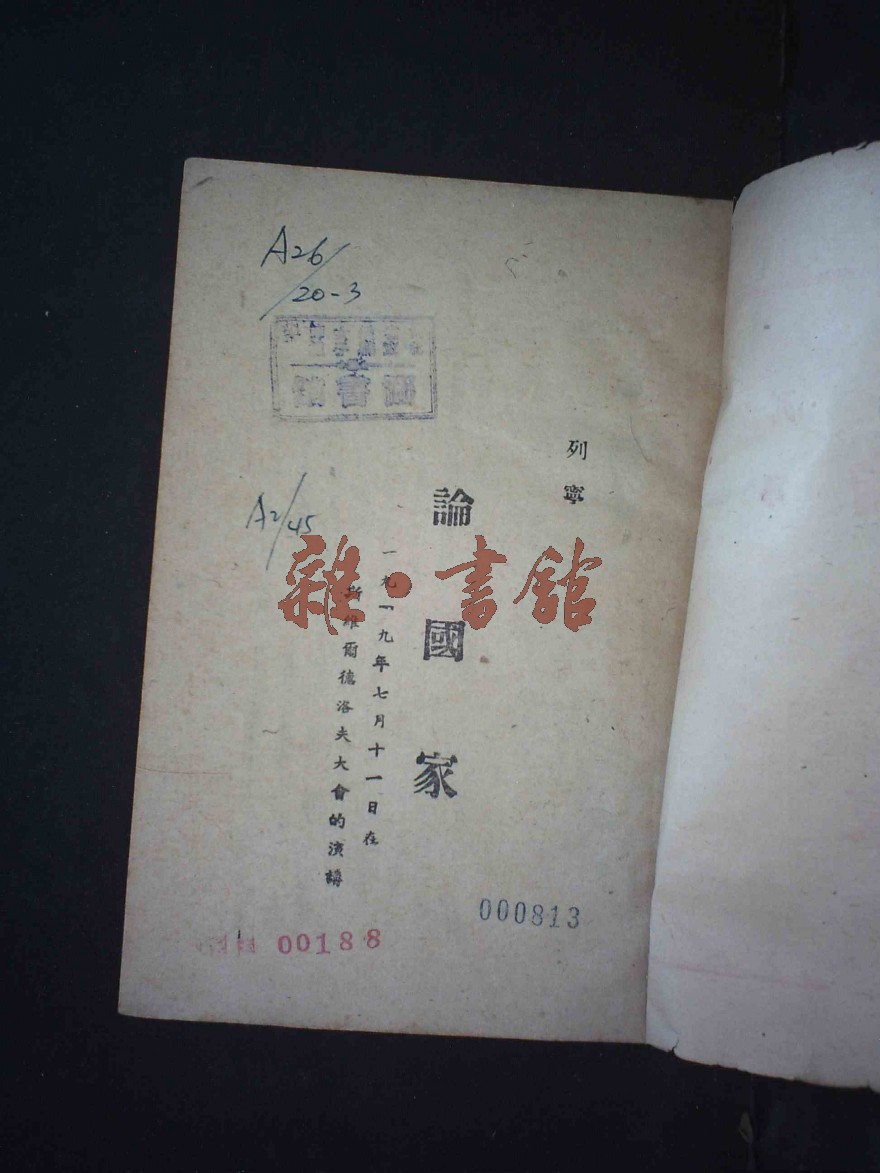 A26/
20-3
圖書館
列寧
論國家
一九一九年七月十一日在
斯維爾德洛夫大會的演講
A2/45
雜·書館
000813
00188